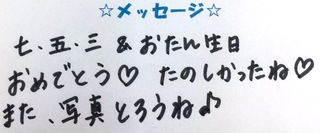 ☆メッセージ☆
七・五・三 & おたん生日
おめでとう♡ たのしかったね♡
また、写真とろうね♪